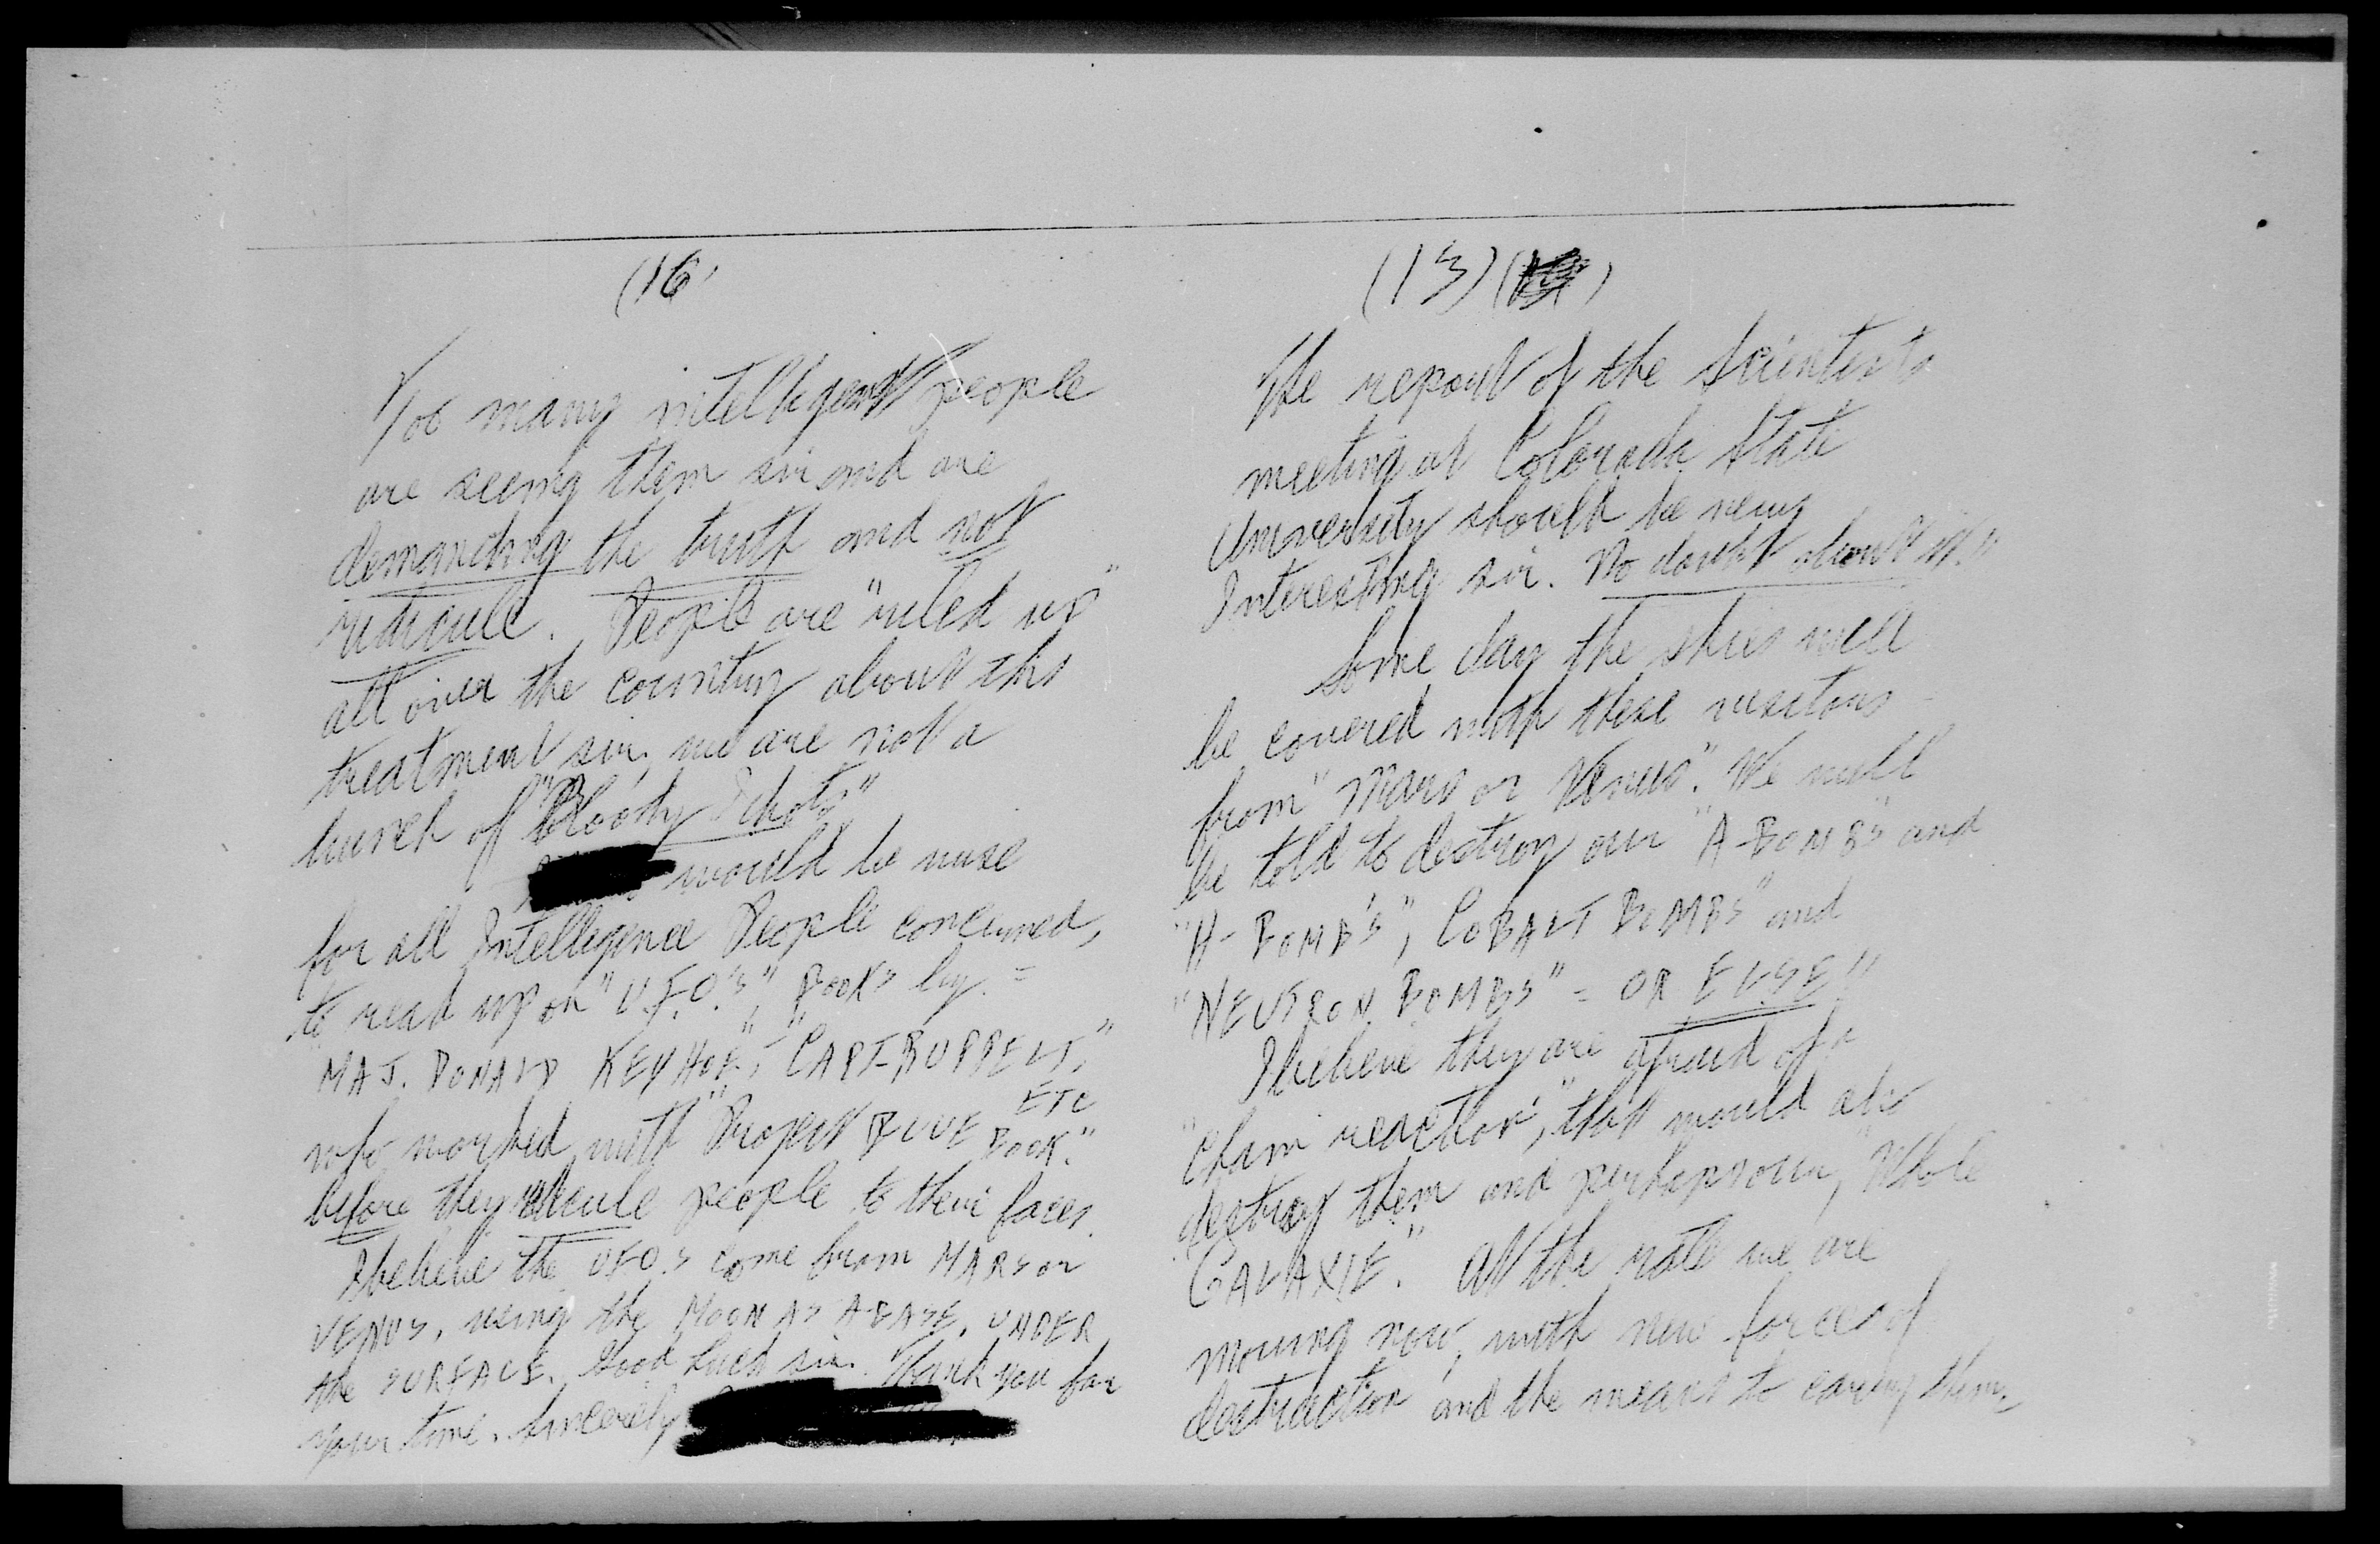 (16)
Too many intelligent people
are seeing them sir and are
demanding the truth and not
ridicule. People are "riled up"
all over the country about this
treatment sir, we are not a
bunch of "Bloody Idiots"
would be wise
for all Intelligence People concerned,
to read up on "U.F.O.'s", Books by =
"MAJ. DONALD KEYHOE", "CAPT-RUPPELT,"
ETC
who worked with "Project BLUE BOOK."
before they ridicule people to their faces.
I believe the UFO.s come from MARS or
VENUS, using the MOON AS A BASE, UNDER
the SURFACE. Good luck sir. Thank you for
your time. Sincerely
(13)
The report of the Scientists
meeting at Colorado State
University should be very
Interesting sir. No doubt about it.
Some day the skies will
be covered with these visitors
from "Mars or Venus". We will
be told to destroy our "A-BOMBS" and
"H-BOMB'S", COBALT BOMBS" and
"NEUTRON BOMBS" = OR ELSE"
I believe they are afraid of a
"chain reaction", that would also
destroy them and perhaps our, "Whole
GALAXIE." At the rate we are
moving now, with new forces of
destruction and the means to carry them,